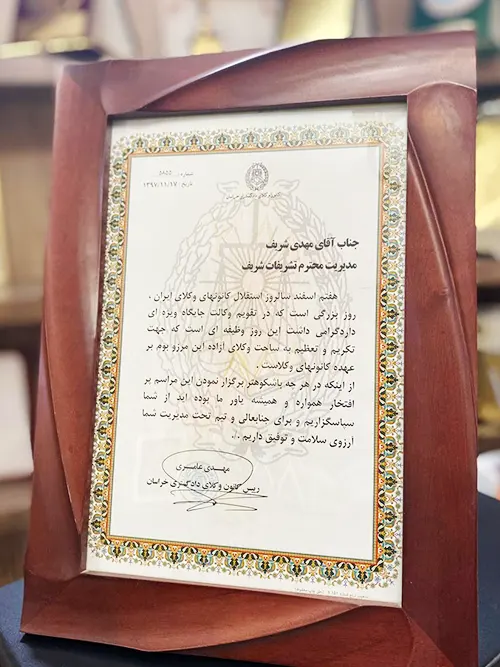 شماره: ۵۸۵۵
تاریخ: ۱۳۹۷/۱۱/۱۷
کانون وکلای دادگستری خراسان
جناب آقای مهدی شریف
مدیریت محترم تشریفات شریف
هفتم اسفند سالروز استقلال کانونهای وکلای ایران ،
روز بزرگی است که در تقویم وکالت جایگاه ویژه ای
داردگرامی داشت این روز وظیفه ای است که جهت
تکریم و تعظیم به ساحت وکلای آزاده این مرزو بوم بر
عهده کانونهای وکلاست .
از اینکه در هر چه باشکوهتر برگزار نمودن این مراسم پر
افتخار همواره و همیشه یاور ما بوده اید از شما
سپاسگزاریم و برای جنابعالی و تیم تحت مدیریت شما
آرزوی سلامت و توفیق داریم ./.
مهدی عامری
رییس کانون وکلای دادگستری خراسان